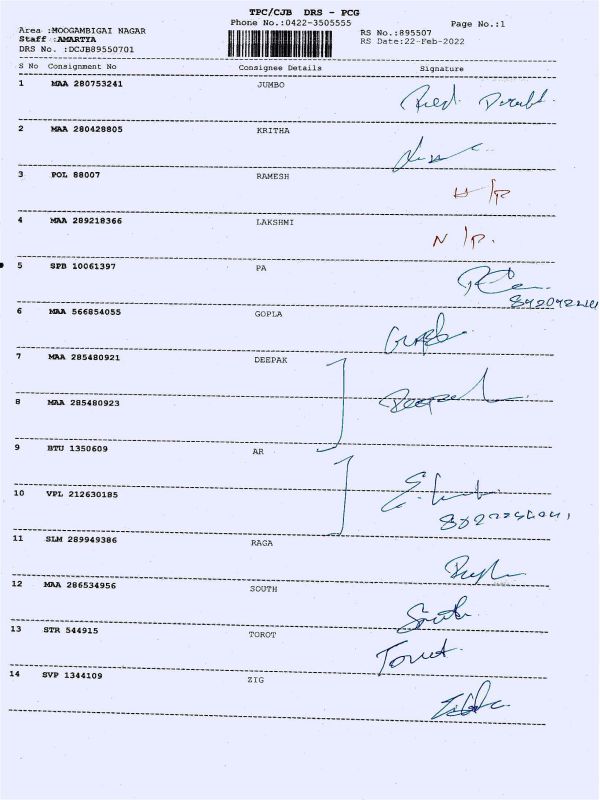 TPC/CJB DRS - PCG
Phone No.:0422-3505555
Page No.:1
Area :MOOGAMBIGAI NAGAR
Staff :AMARTYA
DRS No. :DCJB89550701
RS No.:895507
RS Date:22-Feb-2022
S No Consignment No Consignee Details Signature
1 MAA 280753241 JUMBO
2 MAA 280428805 KRITHA
3 POL 88007 RAMESH
4 MAA 289218366 LAKSHMI N/P.
5 SPB 10061397 PA
6 MAA 566854055 GOPLA
7 MAA 285480921 DEEPAK
8 MAA 285480923 Deepak
9 BTU 1350609 AR
10 VPL 212630185
11 SLM 289949386 RAGA
12 MAA 286534956 SOUTH South
13 STR 544915 TOROT Torot
14 SVP 1344109 ZIG